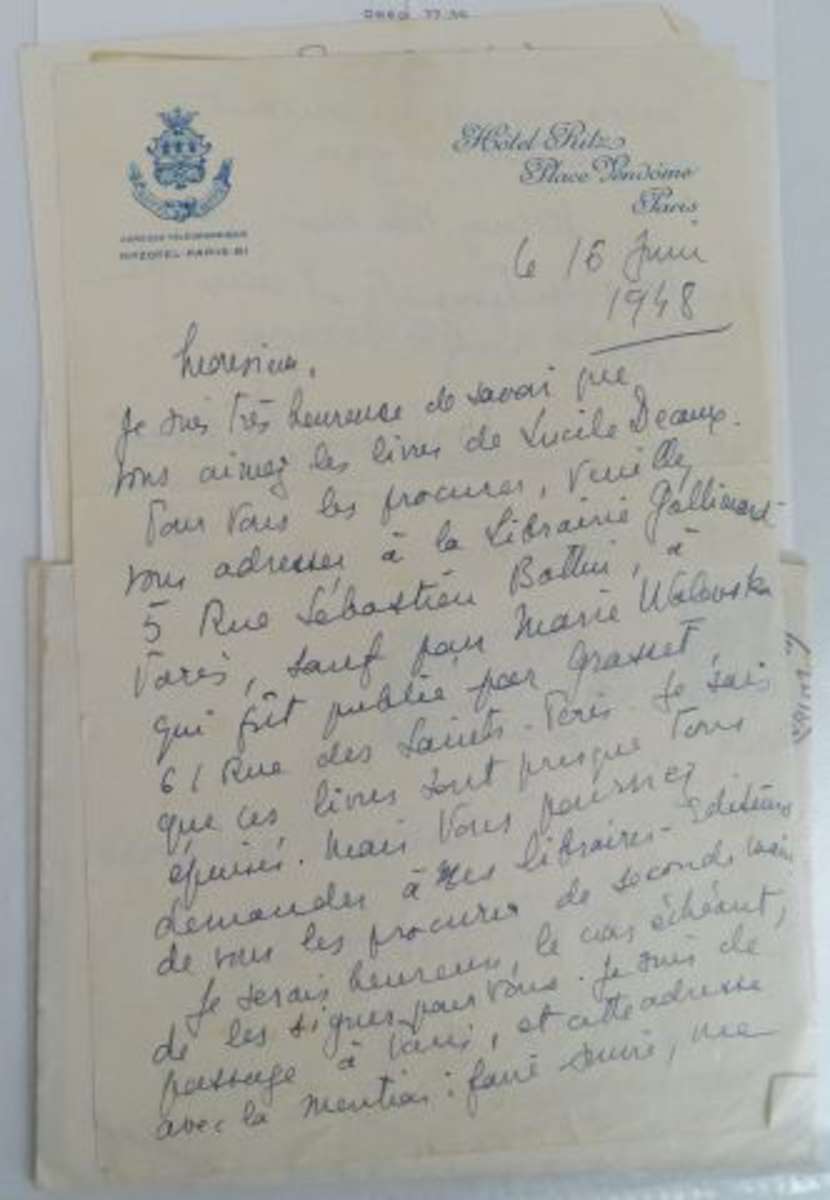 Hôtel Ritz
Place Vendôme
Paris
ADRESSE TÉLÉGRAPHIQUE
RITZOTEL-PARIS-81
le 16 Juin
1948
Monsieur,
Je suis très heureuse de savoir que
vous aimez les livres de Lucile Decaux.
Pour vous les procurer, veuillez
vous adresser à la Librairie Gallimard
5 Rue Sébastien Bottin, à
Paris, sauf pour Marie Walewska
qui fût publié par Grasset,
61 Rue des Saints-Pères. Je sais
que ces livres sont presque tous
épuisés. Mais vous pourriez
demander à mes libraires-editeurs
de vous les procurer de seconde main
Je serais heureuse, le cas échéant,
de les signer pour vous. Je suis de
passage à Paris, et cette adresse
avec la mention: faire suivre, me